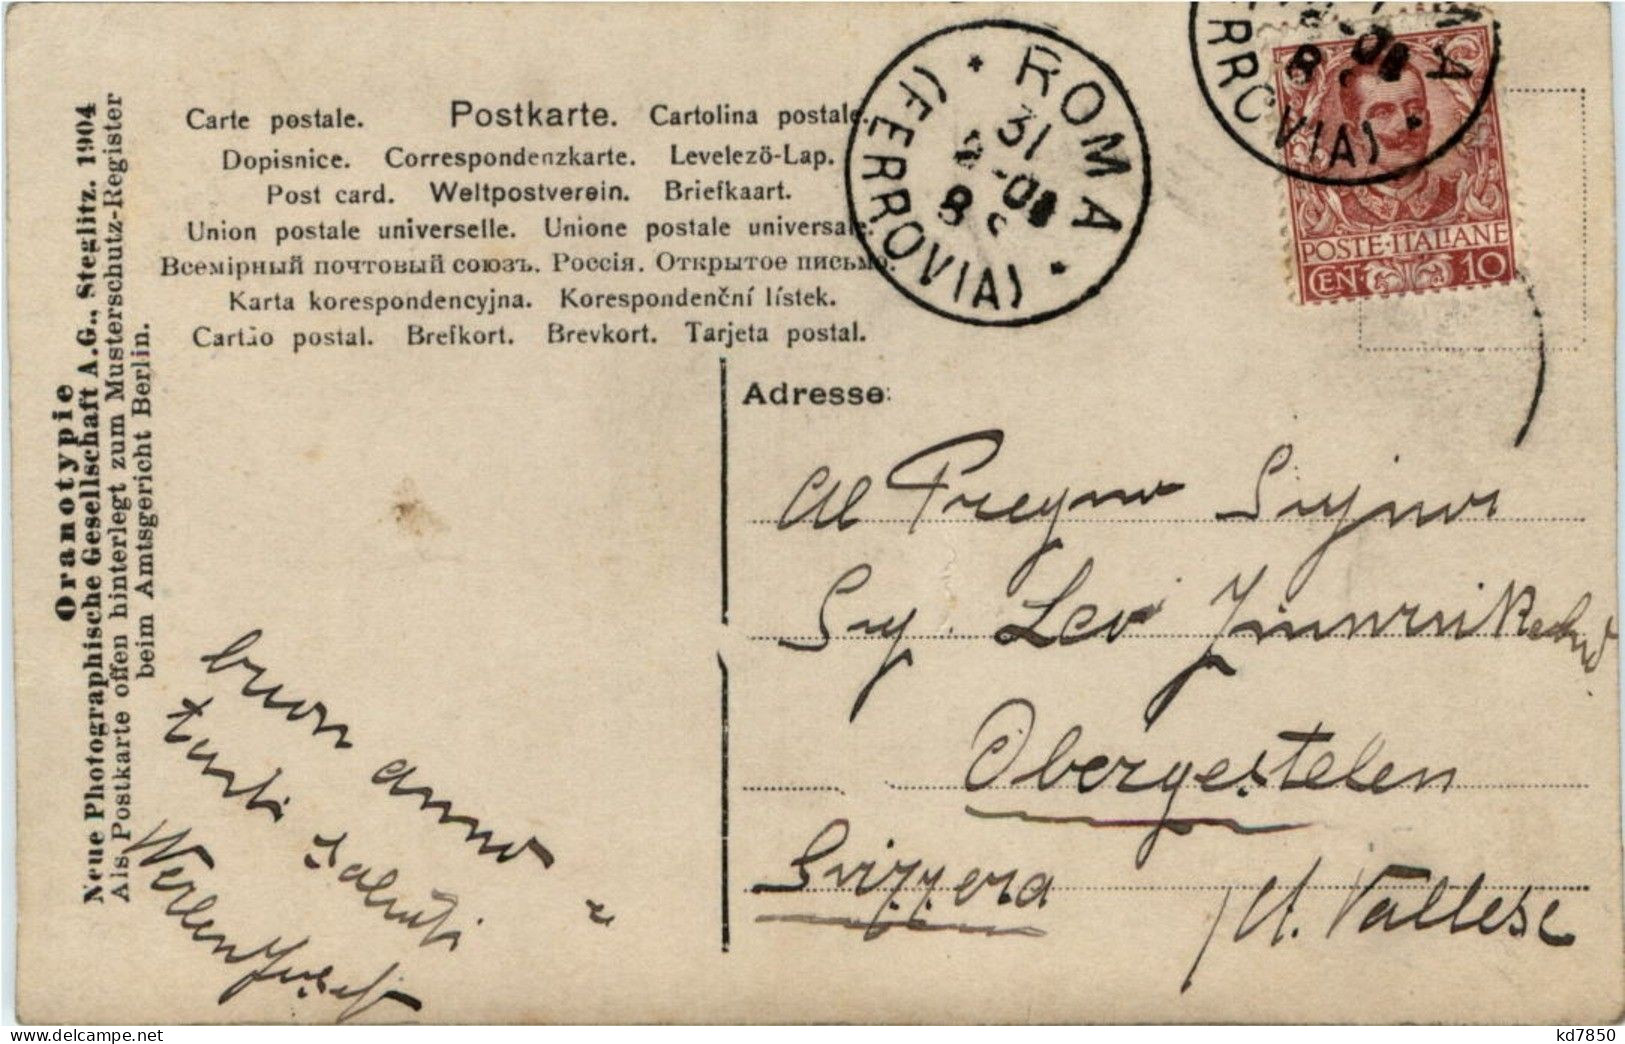 Carte postale. Postkarte. Cartolina postale.
Dopisnice. Correspondenzkarte. Levelezö-Lap.
Post card. Weltpostverein. Briefkaart.
Union postale universelle. Unione postale universale.
Всемірный почтовый союзъ. Россія. Открытое письмо.
Karta korespondencyjna. Korespondenční lístek.
Cartão postal. Brefkort. Brevkort. Tarjeta postal.
Oranotypie
Neue Photographische Gesellschaft A.G., Steglitz. 1904
Als Postkarte offen hinterlegt zum Musterschutz-Register
beim Amtsgericht Berlin.
ROMA
(FERROVIA)
31
POSTE·ITALIANE
CEN 10
Adresse:
Al Pregmo Signor
Sig. Levi
Obergestelen
Svizzera
Ct. Vallese
buon anno e
tanti saluti
Werlen Josef
kd7850